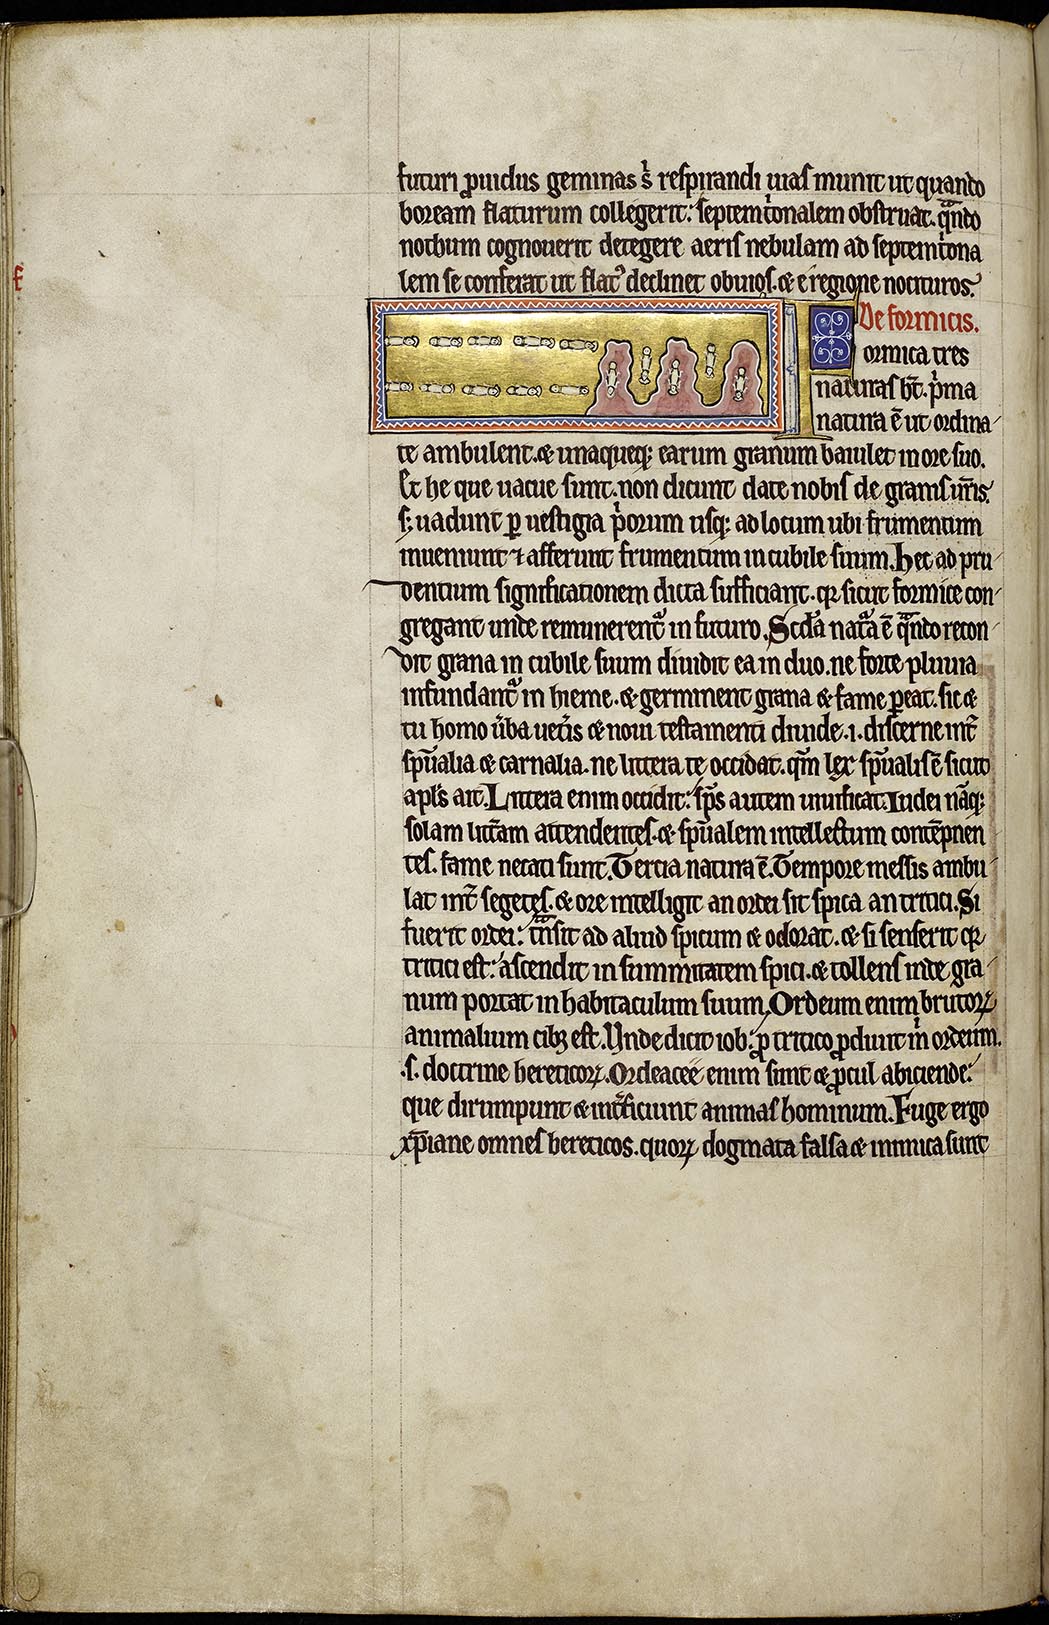 futuri ꝓuidus geminas s̓ respirandi uias munit ut quando
boream flaturum collegerit: septemt̓onalem obstruat. qͣndo
nothum cognouerit detegere aeris nebulam ad septemt̓iona
lem se conferat ut flatꝰ declinet obuios. & e regione nocituros.
De formicis.
Formica tres
naturas ht̄. p̓ma
natura ē ut ordina
te ambulent. & unaqueq; earum granum baiulet in ore suo.
Et he que uacue sunt. non dicunt date nobis de granis ur̄is.
s; uadunt ꝑ uestigia p̓orum usq; ad locum ubi frumentum
inueniunt ⁊ afferunt frumentum in cubile suum. Hec ad pru
dentium significationem dicta sufficiant. qꝛ sicut formice con
gregant unde remunerent᷑ in futuro. Scd̄a nat͛a ē qͣndo recon
dit grana in cubile suum diuidit ea in duo. ne forte pluuia
infundant᷑ in hieme. & germinent grana & fame ꝑeat. sic &
tu homo ūba uet̓is & noui testamenti diuide .i. discerne int̄
sp̄ualia & carnalia. ne littera te occidat. qm̄ lex sp̄ualis ē sicut
apl̄s ait. Littera enim occidit: sp̄s autem uiuificat. Iudei nāq;
solam litt̄am attendentes. & sp̄ualem intellectum contēpnen
tes. fame necati sunt. Tercia natura ē. Tempore messis ambu
lat int̄ segetes. & ore intelligit an ordei sit spica an tritici. Si
fuerit ordei: tͣnsit ad aliud spicum & odorat. & si senserit qꝛ
tritici est: ascendit in summitatem spici. & tollens inde gra
num portat in habitaculum suum. Ordeum enim brutoꝝ
animalium cibꝰ est. Vnde dicit iob: ꝓ tritico ꝓduit m̓ ordeum.
.s. doctrine hereticoꝝ. Ordeacee enim sunt & ꝓcul abiciende:
que dirumpunt & int̄ficiunt animas hominum. Fuge ergo
xp̄iane omnes hereticos. quoꝝ dogmata falsa & inimica sunt